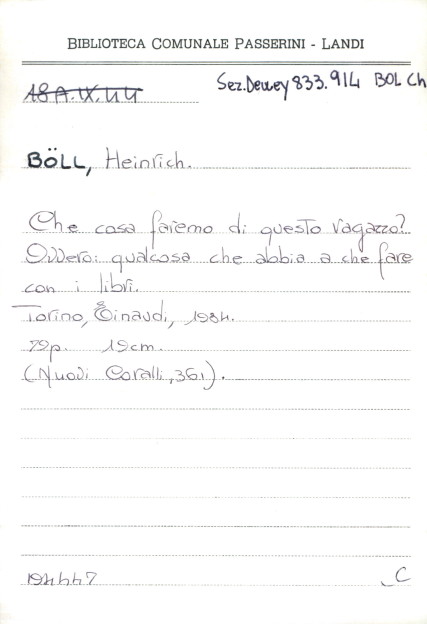 BIBLIOTECA COMUNALE PASSERINI - LANDI
18A.IX.44 Sez.Dewey 833.914 BOL Ch
BÖLL, Heinrich.
Che cosa faremo di questo ragazzo?
Ovvero: qualcosa che abbia a che fare
con i libri.
Torino, Einaudi, 1984.
79p. 19cm.
(Nuovi Coralli, 361).
194447 C